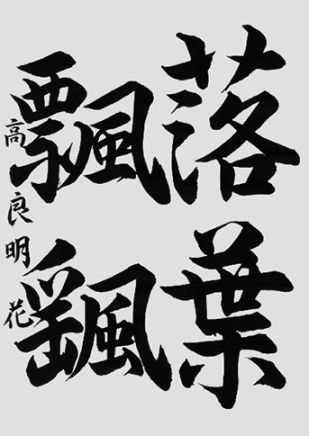 落葉
飄颻
高良明花